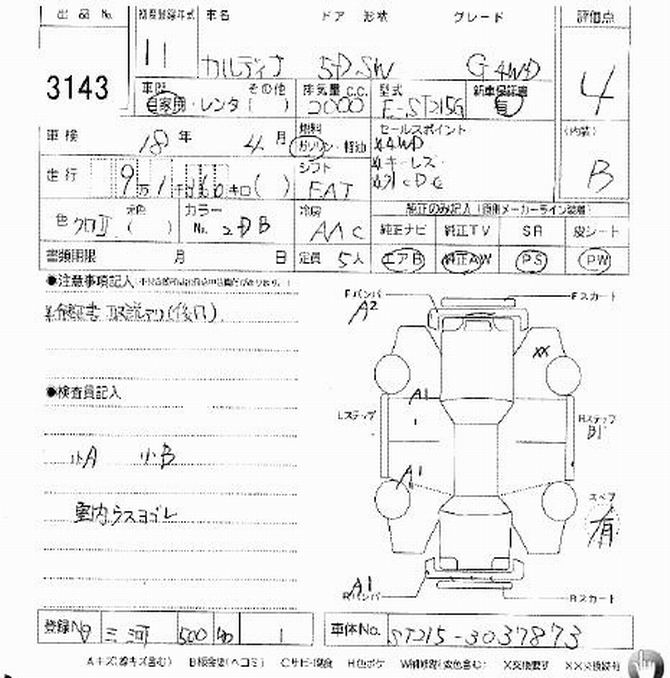 出品 No. 初度登録年式 車名 ドア 形状 グレード 評価点
3143 11 カルディナ 5D SW G 4WD 4
車歴 その他 排気量 C.C. 型式 新車保証書
自家用・レンタ( ) 2000 E-ST215G 有
車検 18 年 4 月 燃料 ガソリン・軽油 セールスポイント (内装)
4WD
キーレス
走行 9万1千 キロ( ) シフト FAT CDC B
色 クロII 元色 ( ) カラー No. 2DB 冷房 AAC 純正のみ記入
純正ナビ 純正TV SR 皮シート
書類期限 月 日 定員 5人 エアB 純正AW PS PW
●注意事項記入
保証書 取説アリ(後日)
Fバンパ Fスカート
A2
XX
●検査員記入
A1
Lステップ Rステップ
B1
小A 小B
A1
スペア
有
室内ウスヨゴレ
A1
Rバンパ Rスカート
登録No 三河 500 1 車体No. ST215-3037873
Aキズ(線キズ含む) B板金(ヘコミ) Cサビ・腐食 H色ボケ X交換要す XX交換済